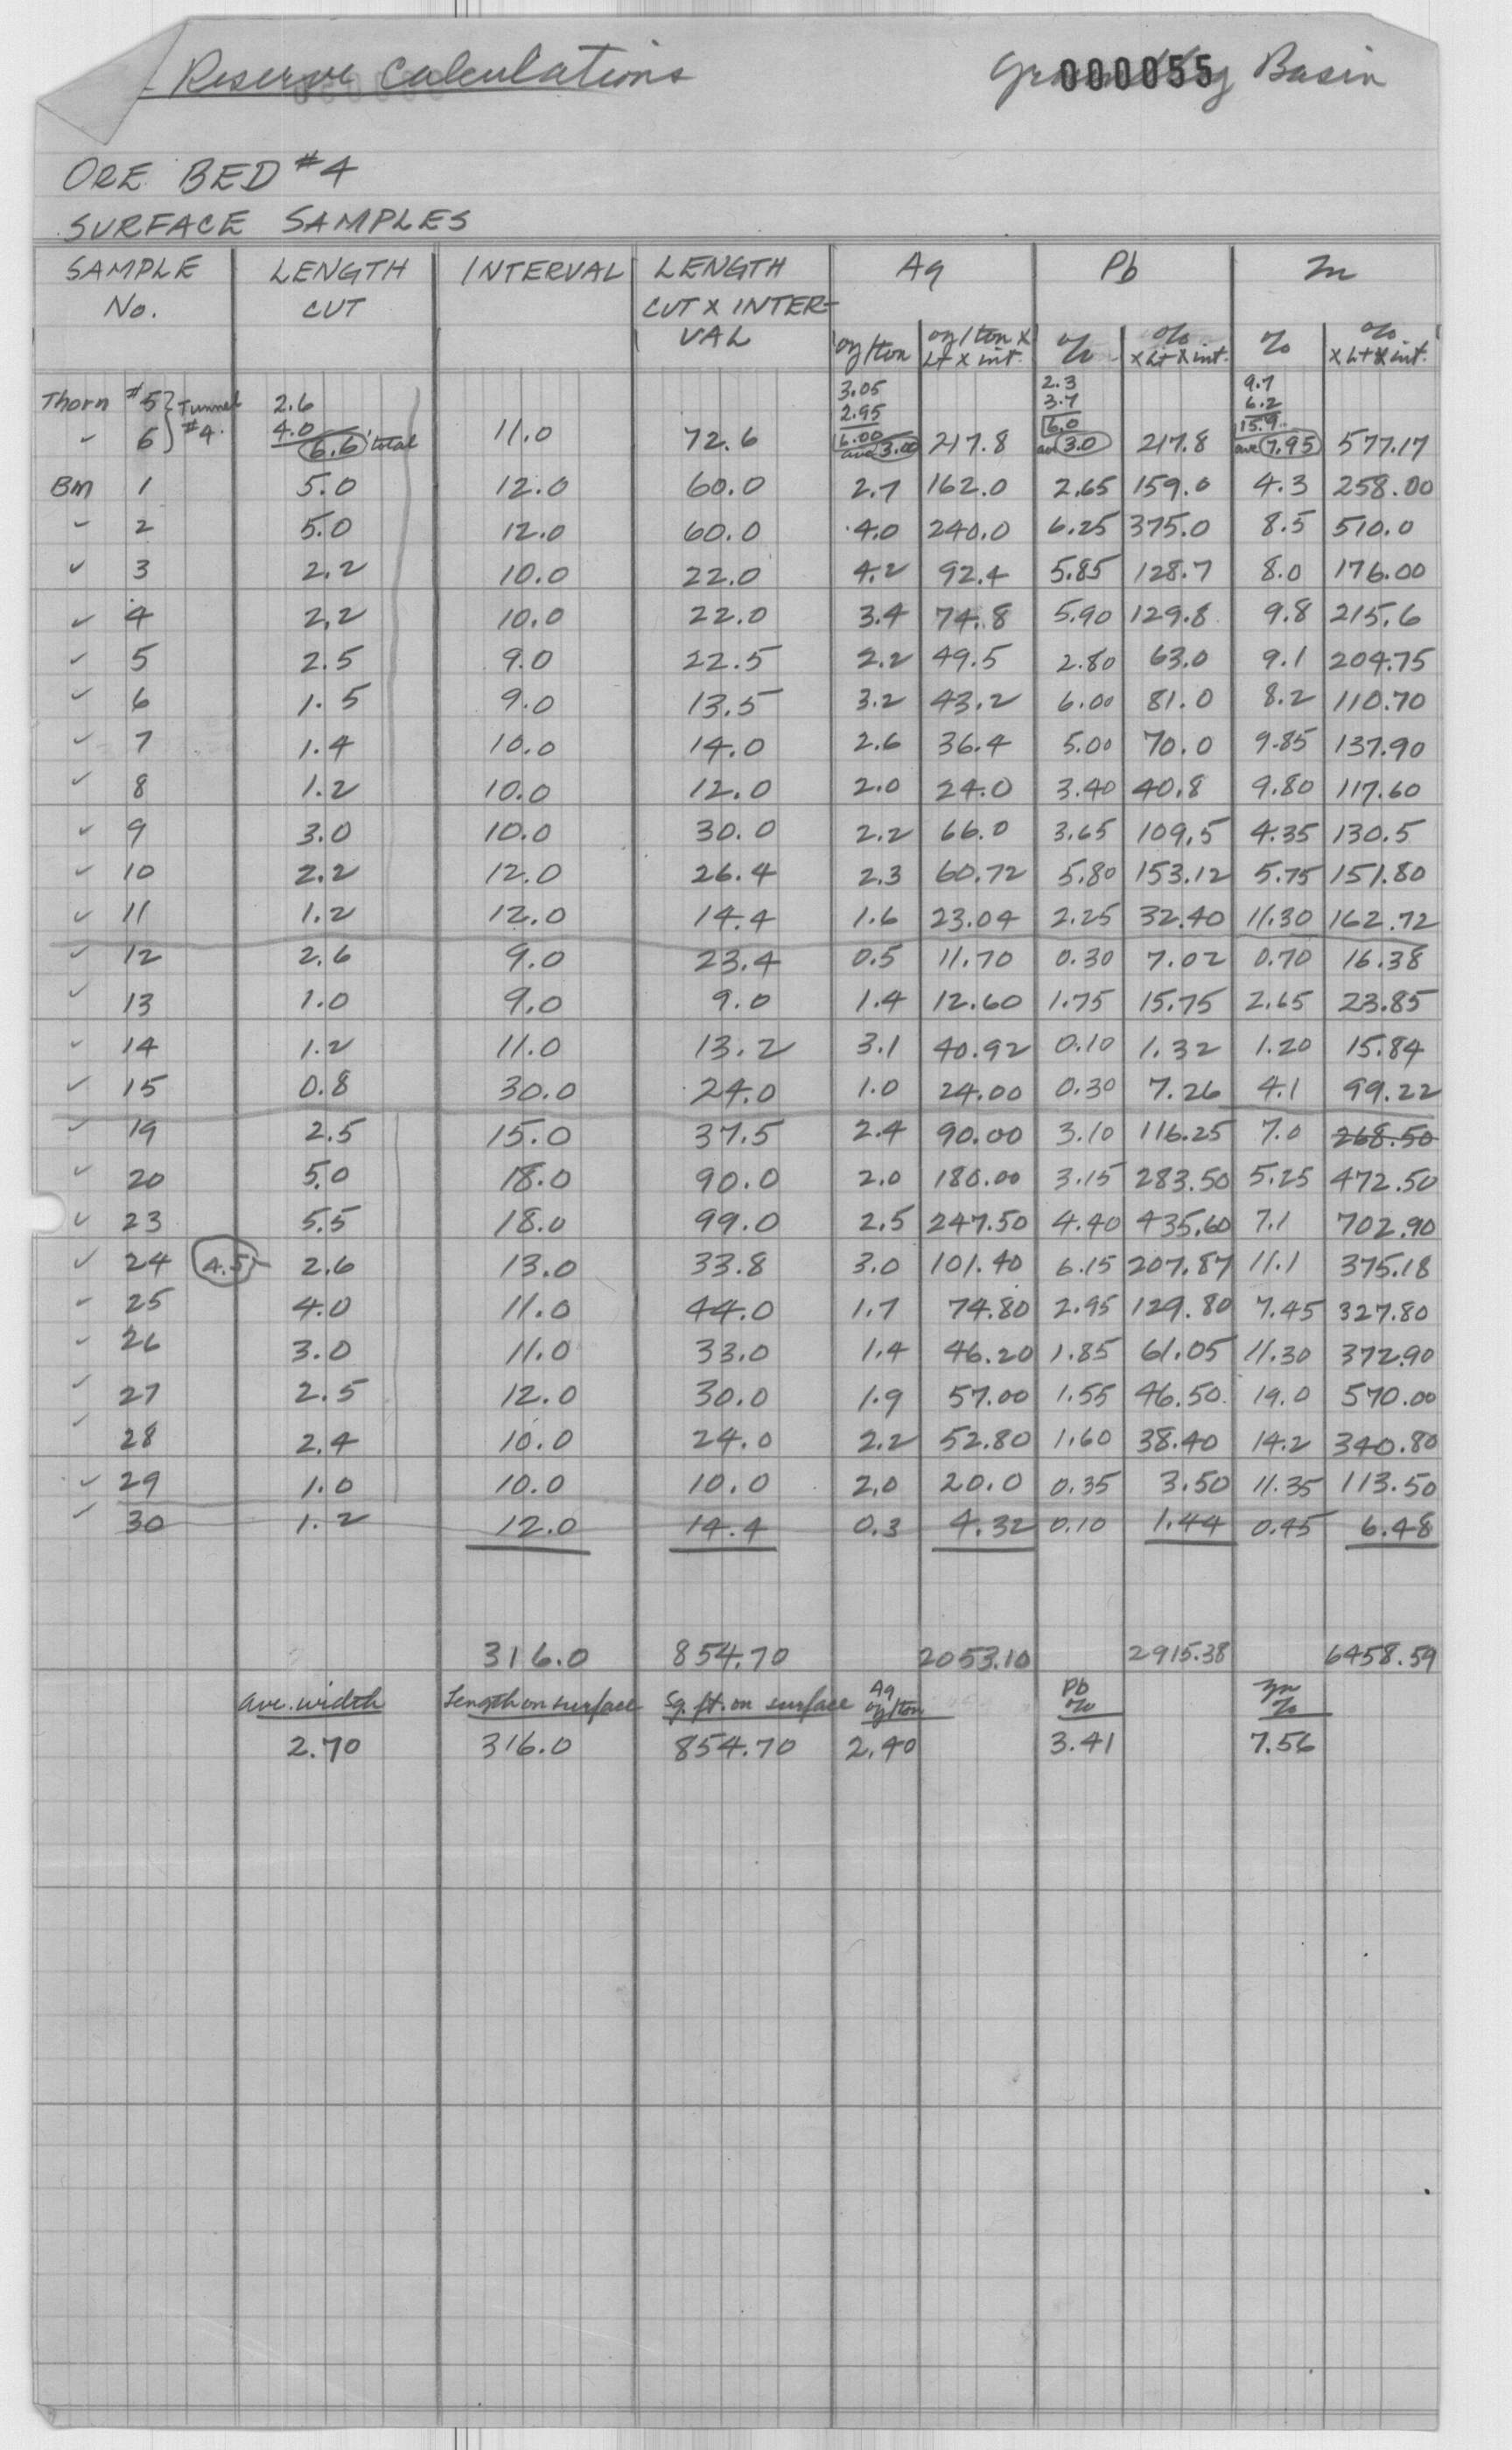 Reserve Calculations
000055 Basin
ORE BED #4
SURFACE SAMPLES
SAMPLE No. LENGTH CUT INTERVAL LENGTH CUT X INTERVAL Ag Pb Zn
oz/ton oz/ton x Lt x int. % % x Lt x int. % % x Lt x int.
3.05 2.3 9.7
Thorn #5 } Tunnel 2.6 2.95 3.7 6.2
" 6 } #4. 4.0 6.00 6.0 15.9
6.6' total 11.0 72.6 ave 3.00 217.8 av 3.0 217.8 ave 7.95 577.17
Bm 1 5.0 12.0 60.0 2.7 162.0 2.65 159.0 4.3 258.00
" 2 5.0 12.0 60.0 4.0 240.0 6.25 375.0 8.5 510.0
" 3 2.2 10.0 22.0 4.2 92.4 5.85 128.7 8.0 176.00
" 4 2.2 10.0 22.0 3.4 74.8 5.90 129.8 9.8 215.6
" 5 2.5 9.0 22.5 2.2 49.5 2.80 63.0 9.1 204.75
" 6 1.5 9.0 13.5 3.2 43.2 6.00 81.0 8.2 110.70
" 7 1.4 10.0 14.0 2.6 36.4 5.00 70.0 9.85 137.90
" 8 1.2 10.0 12.0 2.0 24.0 3.40 40.8 9.80 117.60
" 9 3.0 10.0 30.0 2.2 66.0 3.65 109.5 4.35 130.5
" 10 2.2 12.0 26.4 2.3 60.72 5.80 153.12 5.75 151.80
" 11 1.2 12.0 14.4 1.6 23.04 2.25 32.40 11.30 162.72
" 12 2.6 9.0 23.4 0.5 11.70 0.30 7.02 0.70 16.38
" 13 1.0 9.0 9.0 1.4 12.60 1.75 15.75 2.65 23.85
" 14 1.2 11.0 13.2 3.1 40.92 0.10 1.32 1.20 15.84
" 15 0.8 30.0 24.0 1.0 24.00 0.30 7.26 4.1 99.22
" 19 2.5 15.0 37.5 2.4 90.00 3.10 116.25 7.0 268.50
" 20 5.0 18.0 90.0 2.0 180.00 3.15 283.50 5.25 472.50
" 23 5.5 18.0 99.0 2.5 247.50 4.40 435.60 7.1 702.90
" 24 4.5 2.6 13.0 33.8 3.0 101.40 6.15 207.87 11.1 375.18
" 25 4.0 11.0 44.0 1.7 74.80 2.95 129.80 7.45 327.80
" 26 3.0 11.0 33.0 1.4 46.20 1.85 61.05 11.30 372.90
" 27 2.5 12.0 30.0 1.9 57.00 1.55 46.50 19.0 570.00
" 28 2.4 10.0 24.0 2.2 52.80 1.60 38.40 14.2 340.80
" 29 1.0 10.0 10.0 2.0 20.0 0.35 3.50 11.35 113.50
" 30 1.2 12.0 14.4 0.3 4.32 0.10 1.44 0.45 6.48
316.0 854.70 2053.10 2915.38 6458.59
ave. width Length on surface Sq. ft. on surface Ag oz/ton Pb % Zn %
2.70 316.0 854.70 2.40 3.41 7.56